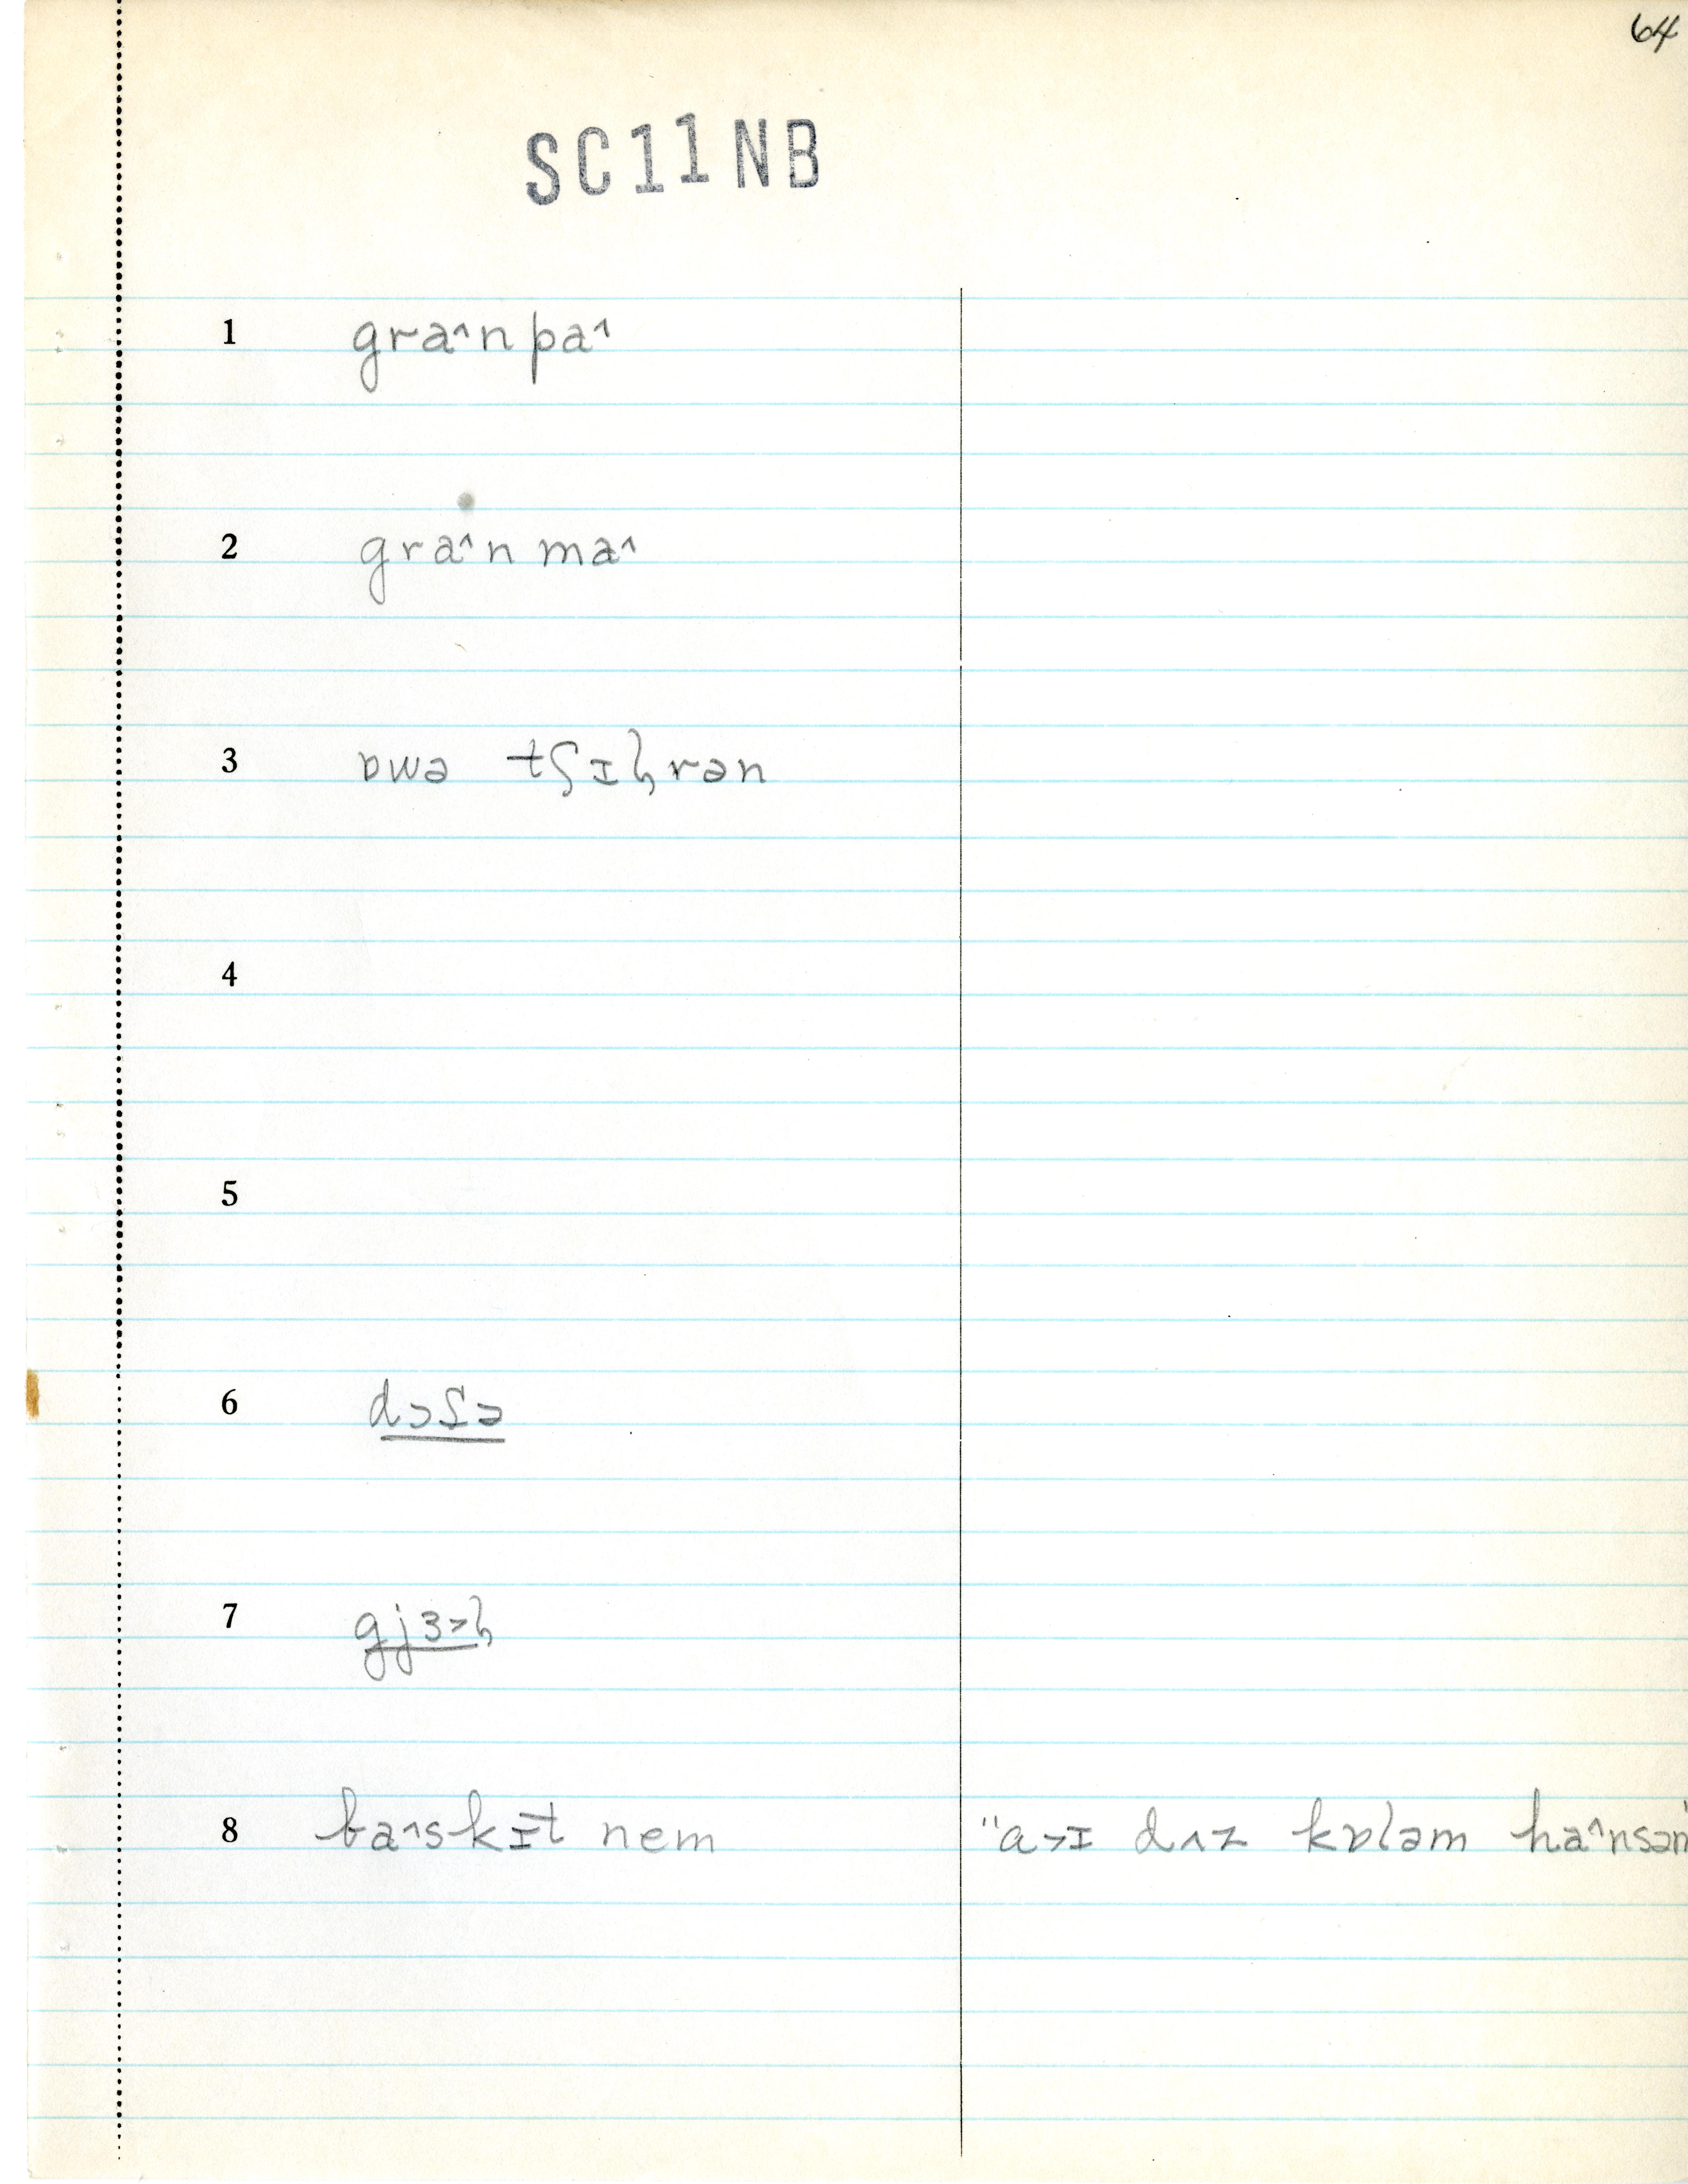 64
SC11NB
1 gra^n pa^
2 gra^n ma^
3 ɒwə tʃɪɫ̦rən
4
5
6 dɔʃə
7 gjɜ>ɫ̦
8 ba^skɪt nem "a>ɪ dʌz kɒləm ha^nsəm"